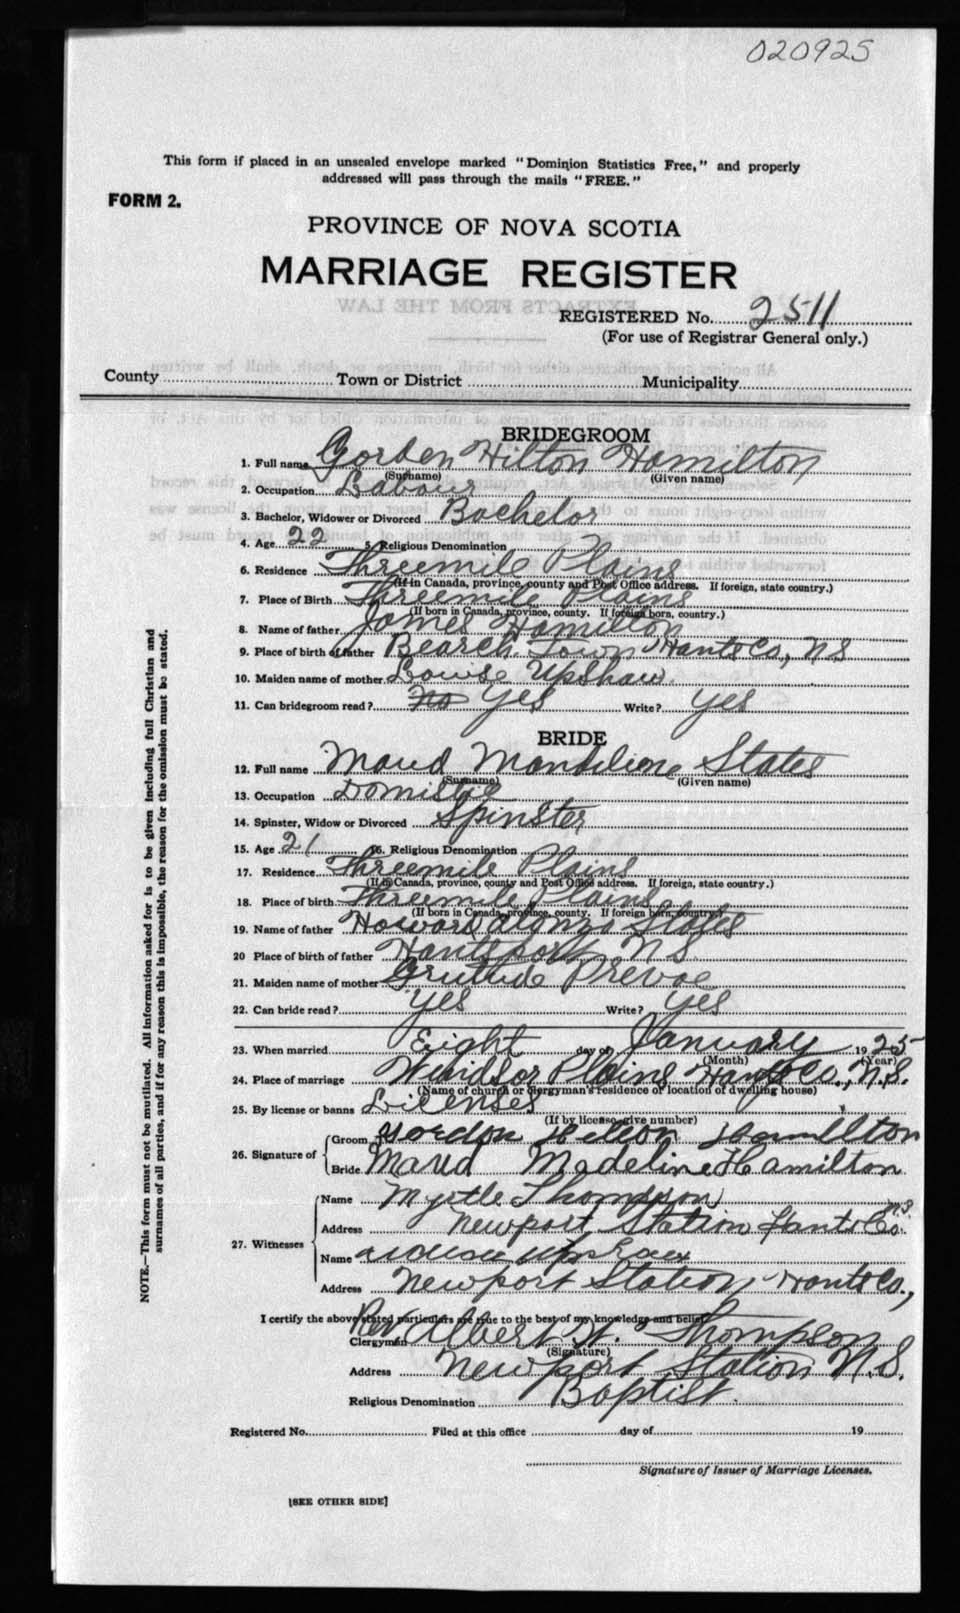 020925
This form if placed in an unsealed envelope marked "Dominion Statistics Free," and properly
addressed will pass through the mails "FREE."
FORM 2.
PROVINCE OF NOVA SCOTIA
MARRIAGE REGISTER
REGISTERED No. 2511
(For use of Registrar General only.)
County Town or District Municipality
BRIDEGROOM
1. Full name Gorden Hilton Hamilton
(Surname) (Given name)
2. Occupation Labour
3. Bachelor, Widower or Divorced Bachelor
4. Age 22 5. Religious Denomination
6. Residence Threemile Plains
(If in Canada, province, county and Post Office address. If foreign, state country.)
7. Place of Birth Threemile Plains
(If born in Canada, province, county. If foreign born, country.)
8. Name of father James Hamilton
9. Place of birth of father Beach Town Hants Co, NS
10. Maiden name of mother Louise Upshaw
11. Can bridegroom read? No Yes Write? Yes
BRIDE
12. Full name Maud Mandeline States
(Surname) (Given name)
13. Occupation Domistic
14. Spinster, Widow or Divorced Spinster
15. Age 21 16. Religious Denomination
17. Residence Threemile Plains
(If in Canada, province, county and Post Office address. If foreign, state country.)
18. Place of birth Threemile Plains
(If born in Canada, province, county. If foreign born, country.)
19. Name of father Howard Alongo States
20 Place of birth of father Hantsport N S.
21. Maiden name of mother Grutude Prevoe
22. Can bride read? Yes Write? Yes
23. When married Eight day of January 1925
(Month) (Year)
24. Place of marriage Windsor Plains Hants Co., N.S.
(Name of church or clergyman's residence or location of dwelling house)
25. By license or banns Licenses
(If by license give number)
26. Signature of Groom Gordon Hilton Hamillton
Bride Maud Madeline Hamilton
27. Witnesses Name Myrtle Thompson
Address Newport Station Hants Co. N.S.
Name Upshaw
Address Newport Station Hants Co.,
I certify the above stated particulars are true to the best of my knowledge and belief
Clergyman Rev Albert W. Thompson
(Signature)
Address Newport Station N.S.
Religious Denomination Baptist.
Registered No. Filed at this office day of 19
Signature of Issuer of Marriage Licenses.
[SEE OTHER SIDE]
NOTE.—This form must not be mutilated. All information asked for is to be given including full Christian and
surnames of all parties, and if for any reason this is impossible, the reason for the omission must be stated.